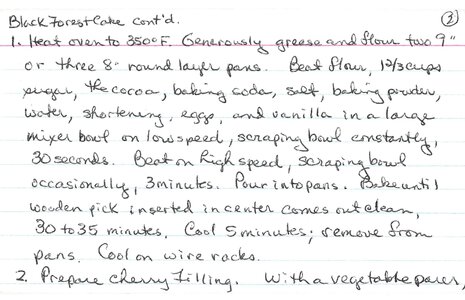 Black Forest Cake cont'd. 3
1. Heat oven to 350°F. Generously grease and flour two 9"
or three 8" round layer pans. Beat flour, 1 2/3 cups
sugar, the cocoa, baking soda, salt, baking powder,
water, shortening, eggs, and vanilla in a large
mixer bowl on low speed, scraping bowl constantly,
30 seconds. Beat on high speed, scraping bowl
occasionally, 3 minutes. Pour into pans. Bake until
wooden pick inserted in center comes out clean,
30 to 35 minutes. Cool 5 minutes; remove from
pans. Cool on wire racks.
2. Prepare cherry filling. With a vegetable parer,